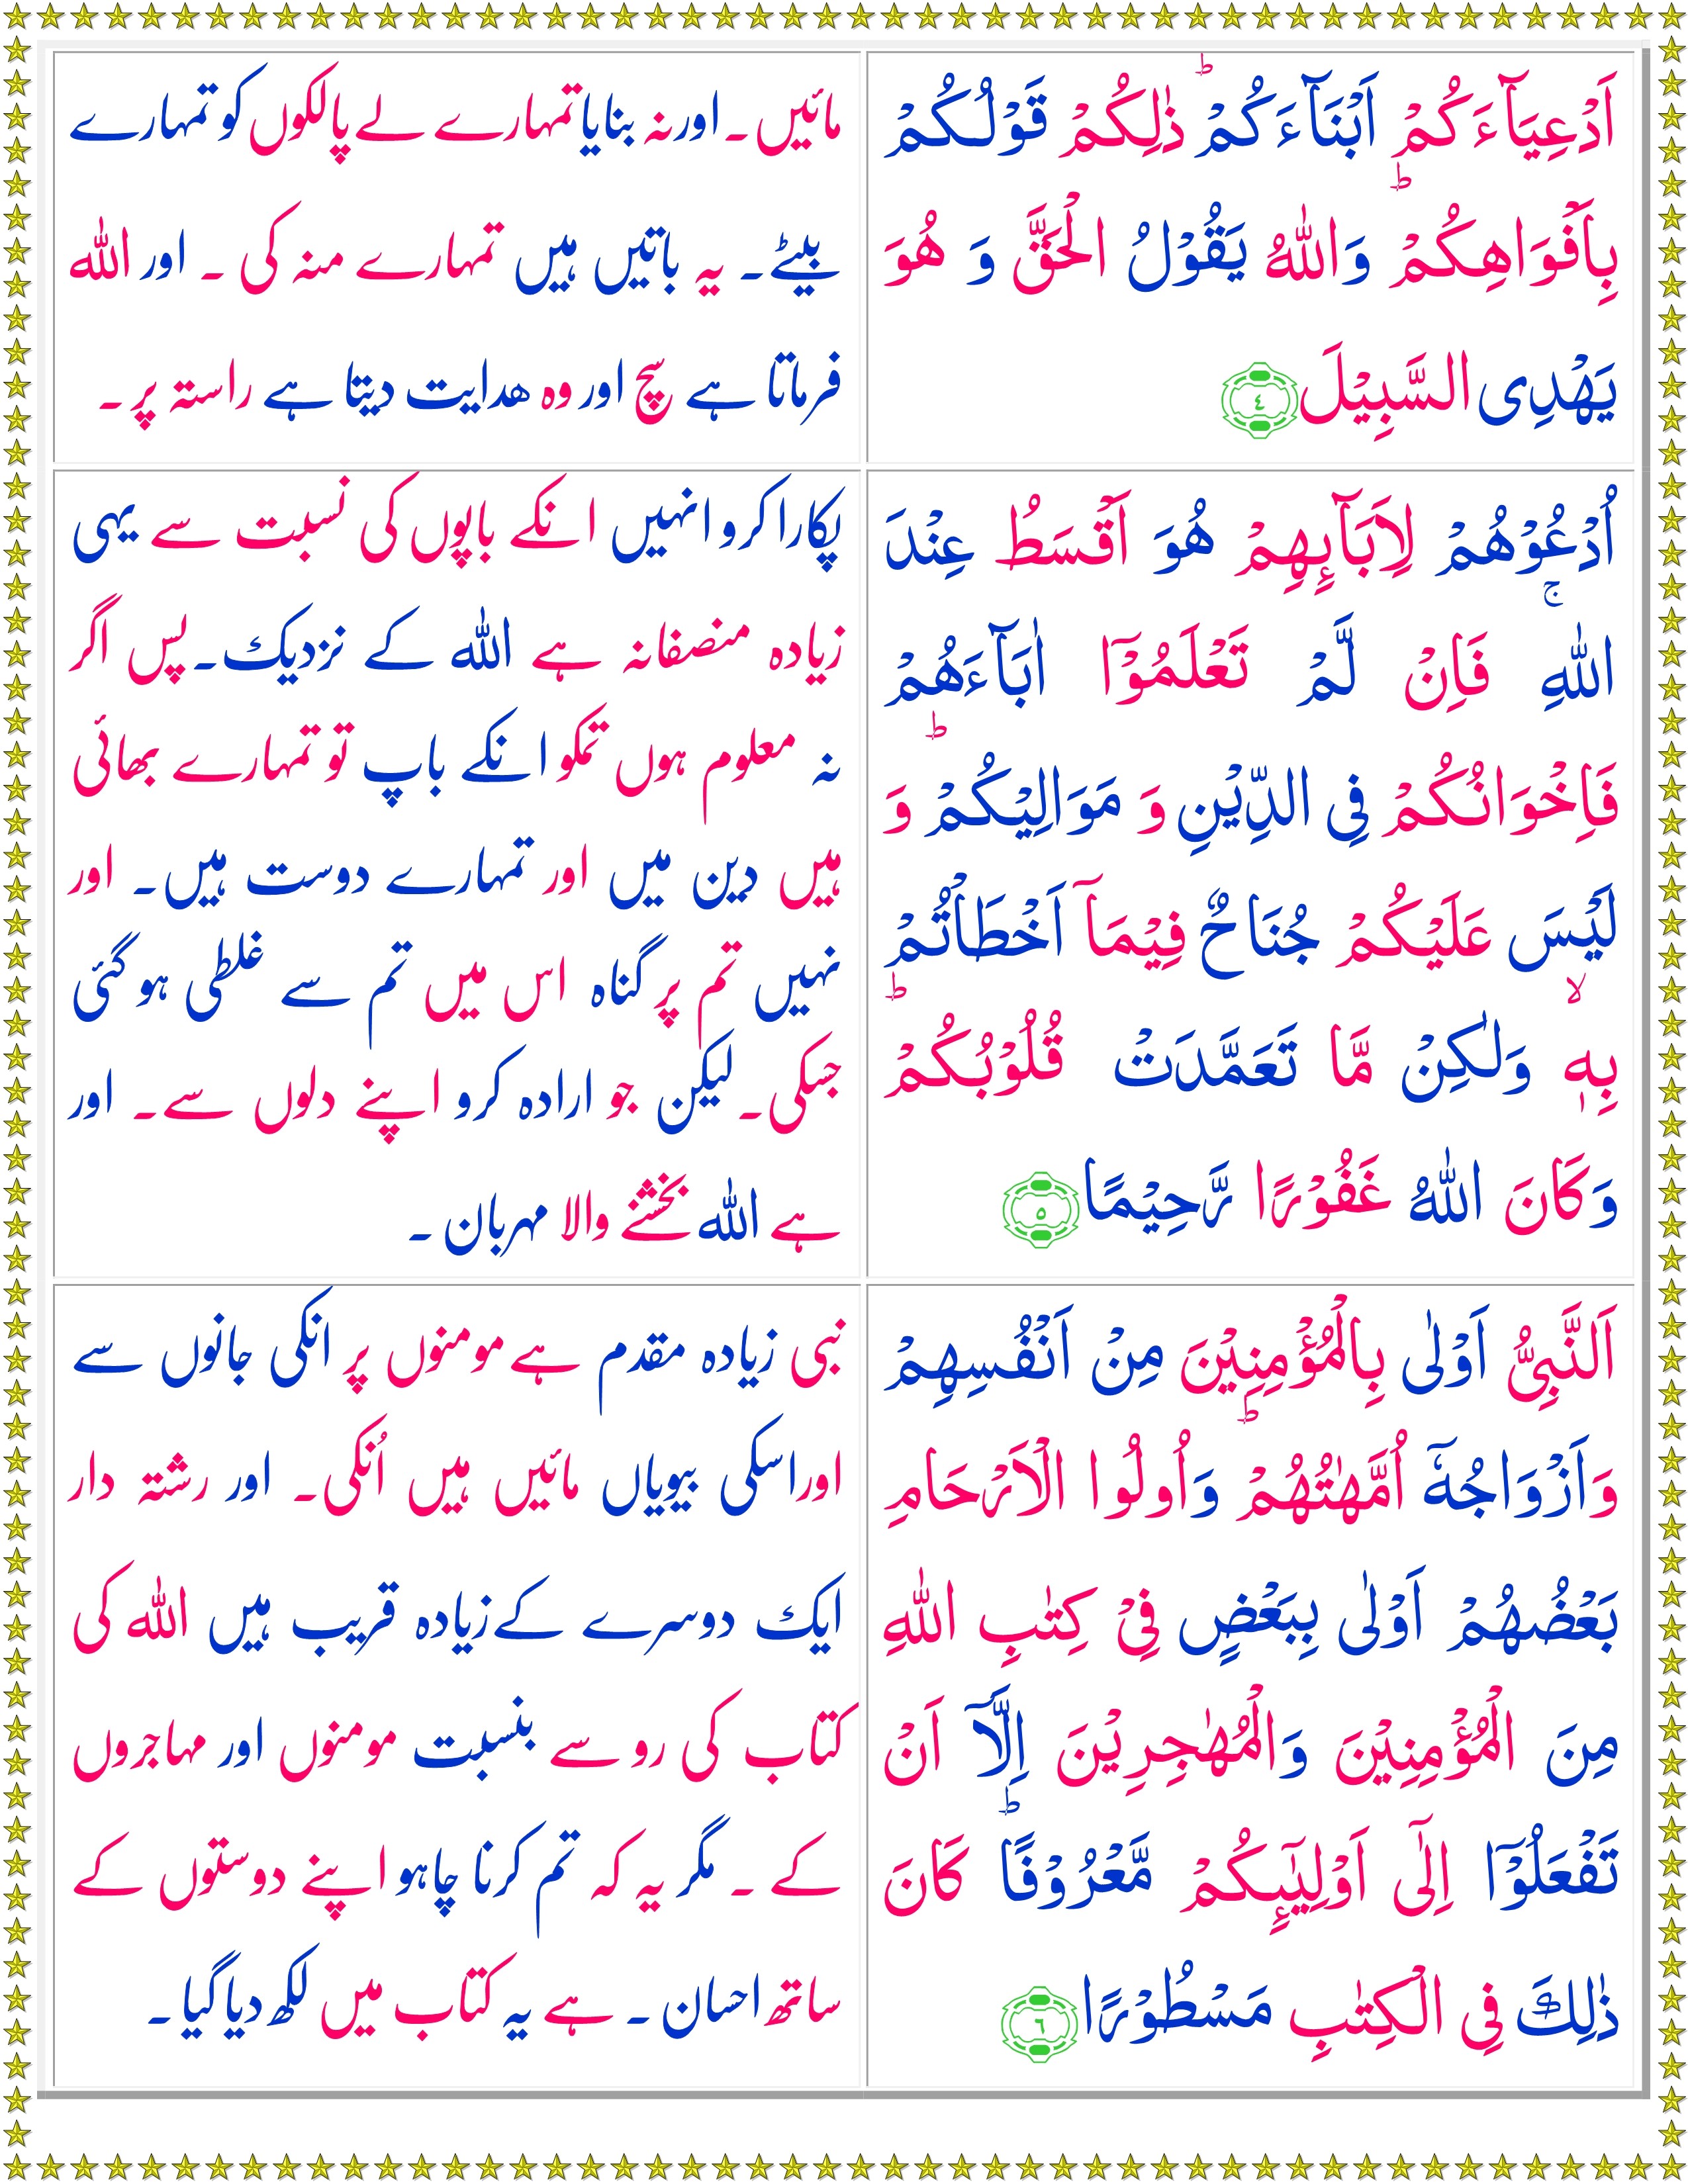 اَدْعِيَآءَكُمْ اَبْنَآءَكُمْ ؕ ذٰلِكُمْ قَوْلُكُمْ
بِاَفْوَاهِكُمْ ؕ وَاللّٰهُ يَقُوْلُ الْحَقَّ وَ هُوَ
يَهْدِى السَّبِيْلَ ٤
مائیں۔ اور نہ بنایا تمہارے لے پالکوں کو تمہارے
بیٹے۔ یہ باتیں ہیں تمہارے منہ کی ۔ اور اللہ
فرماتا ہے سچ اور وہ ھدایت دیتا ہے راستہ پر۔
اُدْعُوْهُمْ لِاٰبَآٮِٕهِمْ هُوَ اَقْسَطُ عِنْدَ
اللّٰهِ ۚ فَاِنْ لَّمْ تَعْلَمُوْۤا اٰبَآءَهُمْ
فَاِخْوَانُكُمْ فِى الدِّيْنِ وَ مَوَالِيْكُمْ ؕ وَ
لَيْسَ عَلَيْكُمْ جُنَاحٌ فِيْمَاۤ اَخْطَاْتُمْ
بِهٖ ۙ وَلٰكِنْ مَّا تَعَمَّدَتْ قُلُوْبُكُمْ ؕ
وَكَانَ اللّٰهُ غَفُوْرًا رَّحِيْمًا ٥
پکارا کرو انہیں انکے باپوں کی نسبت سے یہی
زیادہ منصفانہ ہے اللہ کے نزدیک۔ پس اگر
نہ معلوم ہوں تمکو انکے باپ تو تمہارے بھائی
ہیں دین میں اور تمہارے دوست ہیں۔ اور
نہیں تم پر گناہ اس میں تم سے غلطی ہو گئی
جسکی۔ لیکن جو ارادہ کرو اپنے دلوں سے۔ اور
ہے اللہ بخشنے والا مہربان۔
اَلنَّبِىُّ اَوْلٰى بِالْمُؤْمِنِيْنَ مِنْ اَنْفُسِهِمْ
وَاَزْوَاجُهٗۤ اُمَّهٰتُهُمْ ؕ وَاُولُوا الْاَرْحَامِ
بَعْضُهُمْ اَوْلٰى بِبَعْضٍ فِىْ كِتٰبِ اللّٰهِ
مِنَ الْمُؤْمِنِيْنَ وَالْمُهٰجِرِيْنَ اِلَّاۤ اَنْ
تَفْعَلُوْۤا اِلٰٓى اَوْلِيٰٓٮِٕكُمْ مَّعْرُوْفًا ؕ كَانَ
ذٰلِكَ فِى الْكِتٰبِ مَسْطُوْرًا ٦
نبی زیادہ مقدم ہے مومنوں پر انکی جانوں سے
اور اسکی بیویاں مائیں ہیں اُنکی۔ اور رشتہ دار
ایک دوسرے کے زیادہ قریب ہیں اللہ کی
کتاب کی رو سے بنسبت مومنوں اور مہاجروں
کے ۔ مگر یہ کہ تم کرنا چاہو اپنے دوستوں کے
ساتھ احسان ۔ ہے یہ کتاب میں لکھ دیا گیا۔